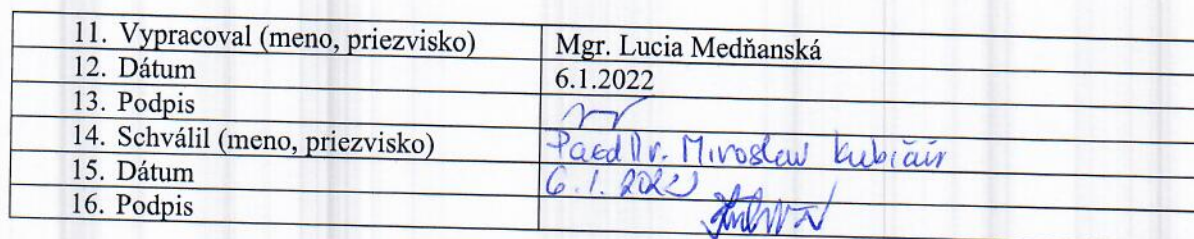 11. Vypracoval (meno, priezvisko) Mgr. Lucia Medňanská
12. Dátum 6.1.2022
13. Podpis
14. Schválil (meno, priezvisko) PaedDr. Miroslav Kubičár
15. Dátum 6.1.2022
16. Podpis